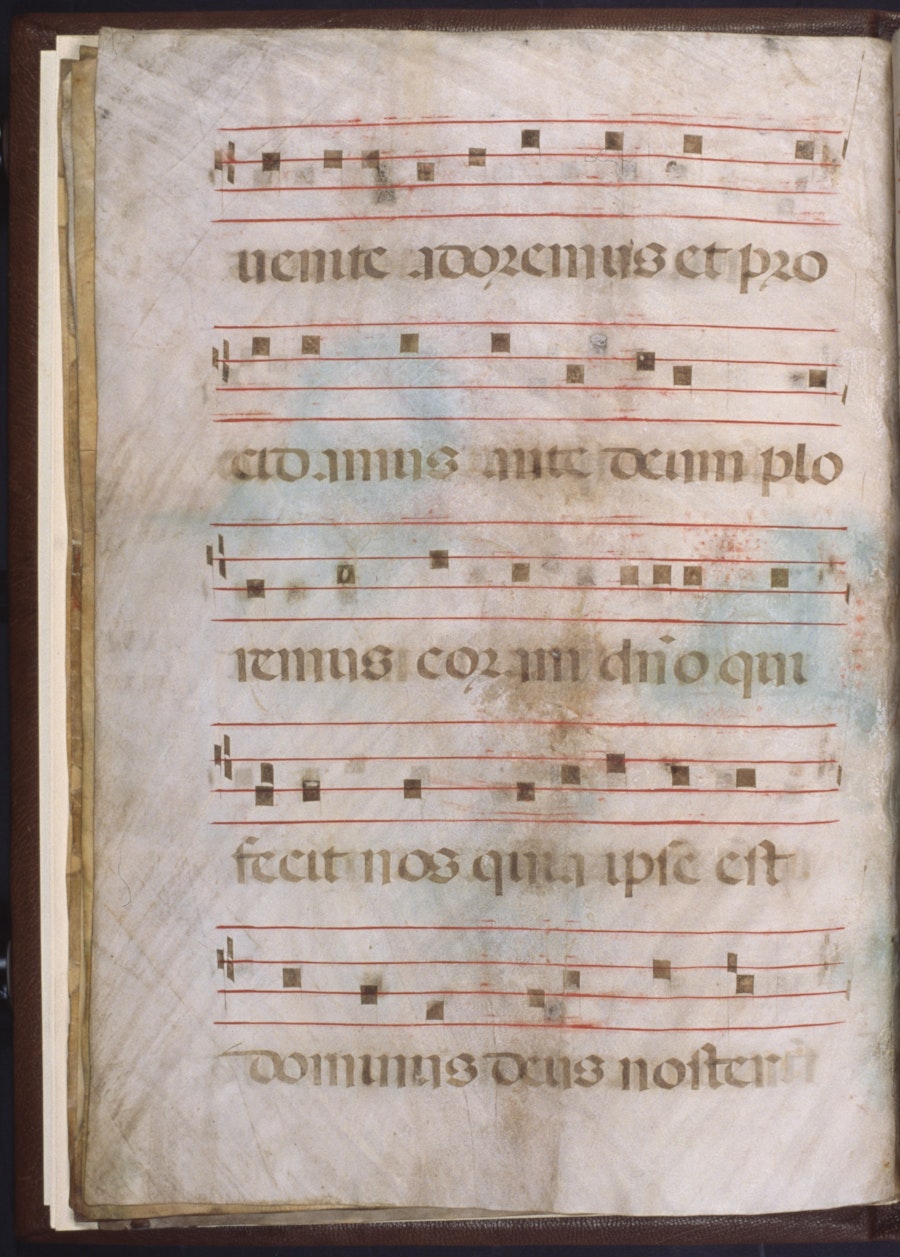 uenite adoremus et pro
cidamus ante deum plo
remus coram dño qui
fecit nos quia ipse est
dominus deus noster